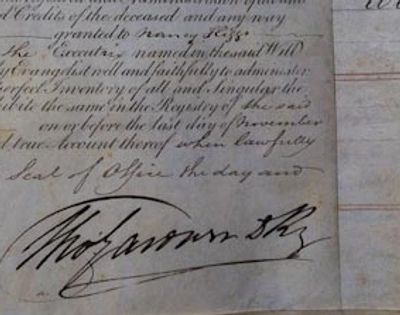 d Credits of the deceased and any way
granted to Nancy
the Executrix named in the said Will
ly Evangelist well and faithfully to administer
perfect Inventory of all and Singular the
hibite the same in the Registry of the said
on or before the last day of November
d true Account thereof when lawfully
Seal of Office the day and
Tho Gardner D Rg